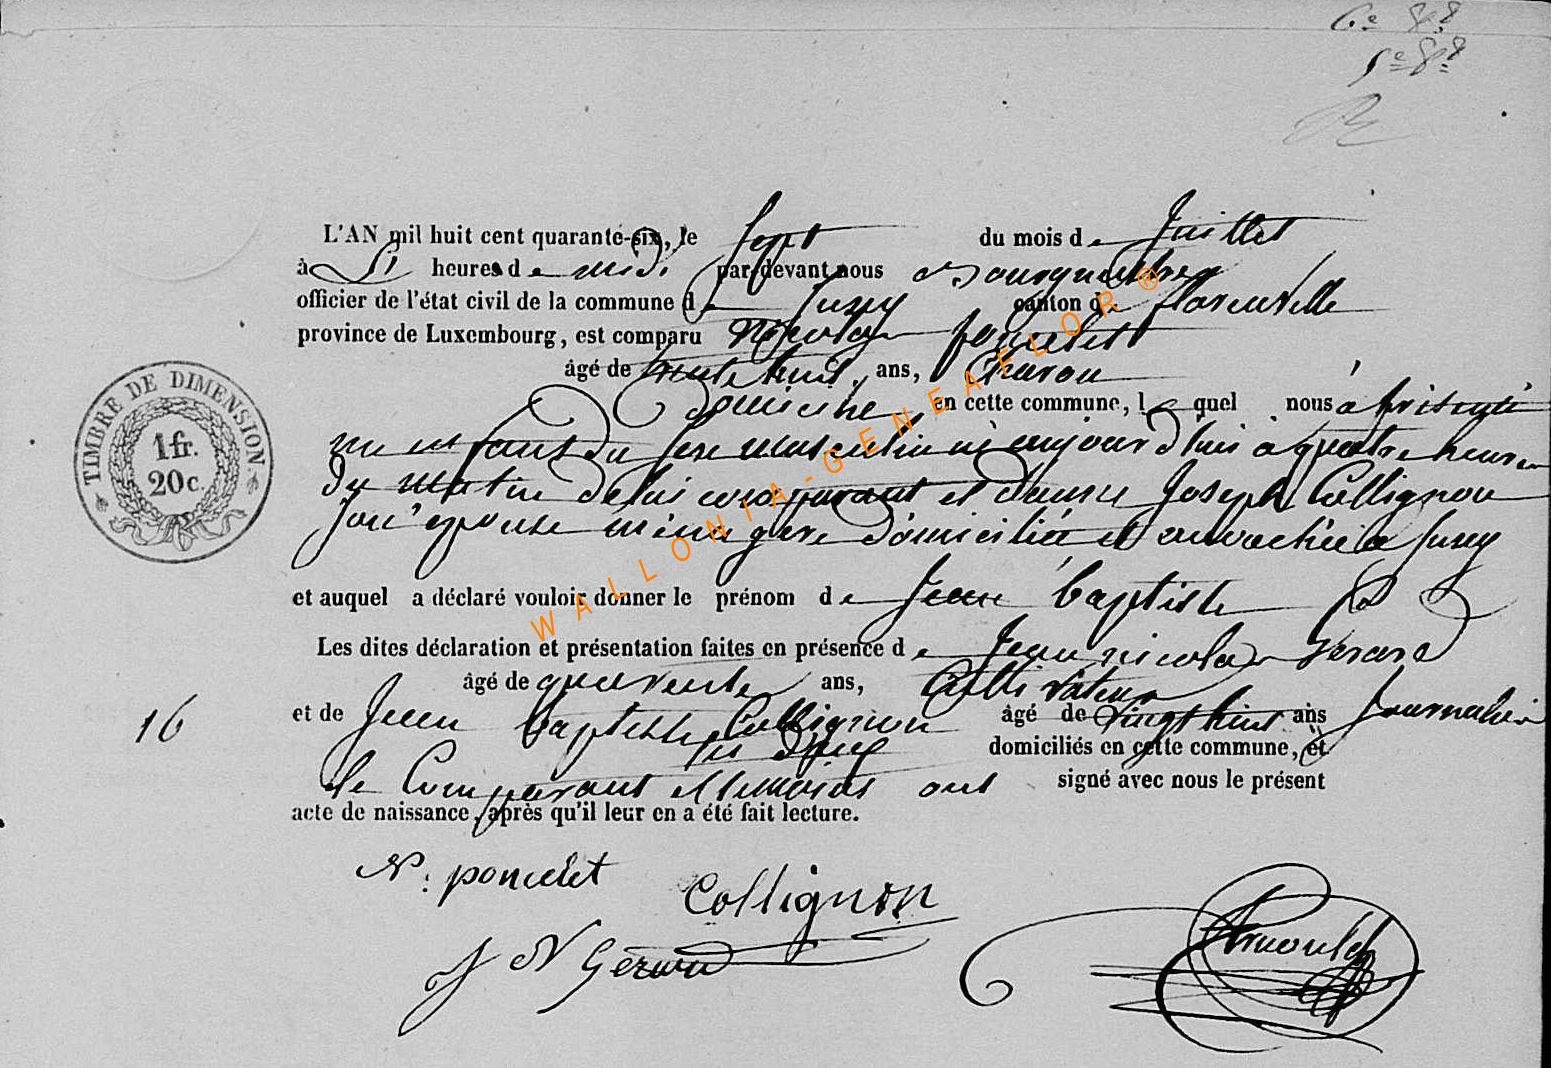 L'AN mil huit cent quarante-six, le sept du mois de Juillet
à Six heures de midi par devant nous Bourguemestre
officier de l'état civil de la commune de Suxy canton de florenville
province de Luxembourg, est comparu Nicolas poncelet
âgé de trente huit ans, Charon
Domicilié en cette commune, le quel nous à présenté
un enfant du sexe masculin né aujourd'hui à quatre heures
du matin de lui comparant et d'anne Joseph Collignon
son épouse ménagère domiciliée et accouchée a Suxy
et auquel a déclaré vouloir donner le prénom de Jean baptiste
Les dites déclaration et présentation faites en présence de Jean nicolas Gérard
âgé de quarente ans, Cultivateur
et de Jean baptiste Collignon âgé de vingt huit ans Journalier
domiciliés en cette commune, et
le Comparant et temoins ont signé avec nous le présent
acte de naissance, après qu'il leur en a été fait lecture.
N. poncelet
Collignon
J N Gérard
Arnould
16
TIMBRE DE DIMENSION.
1 fr.
20 c.
WALLONIA-GENEAFLOR®